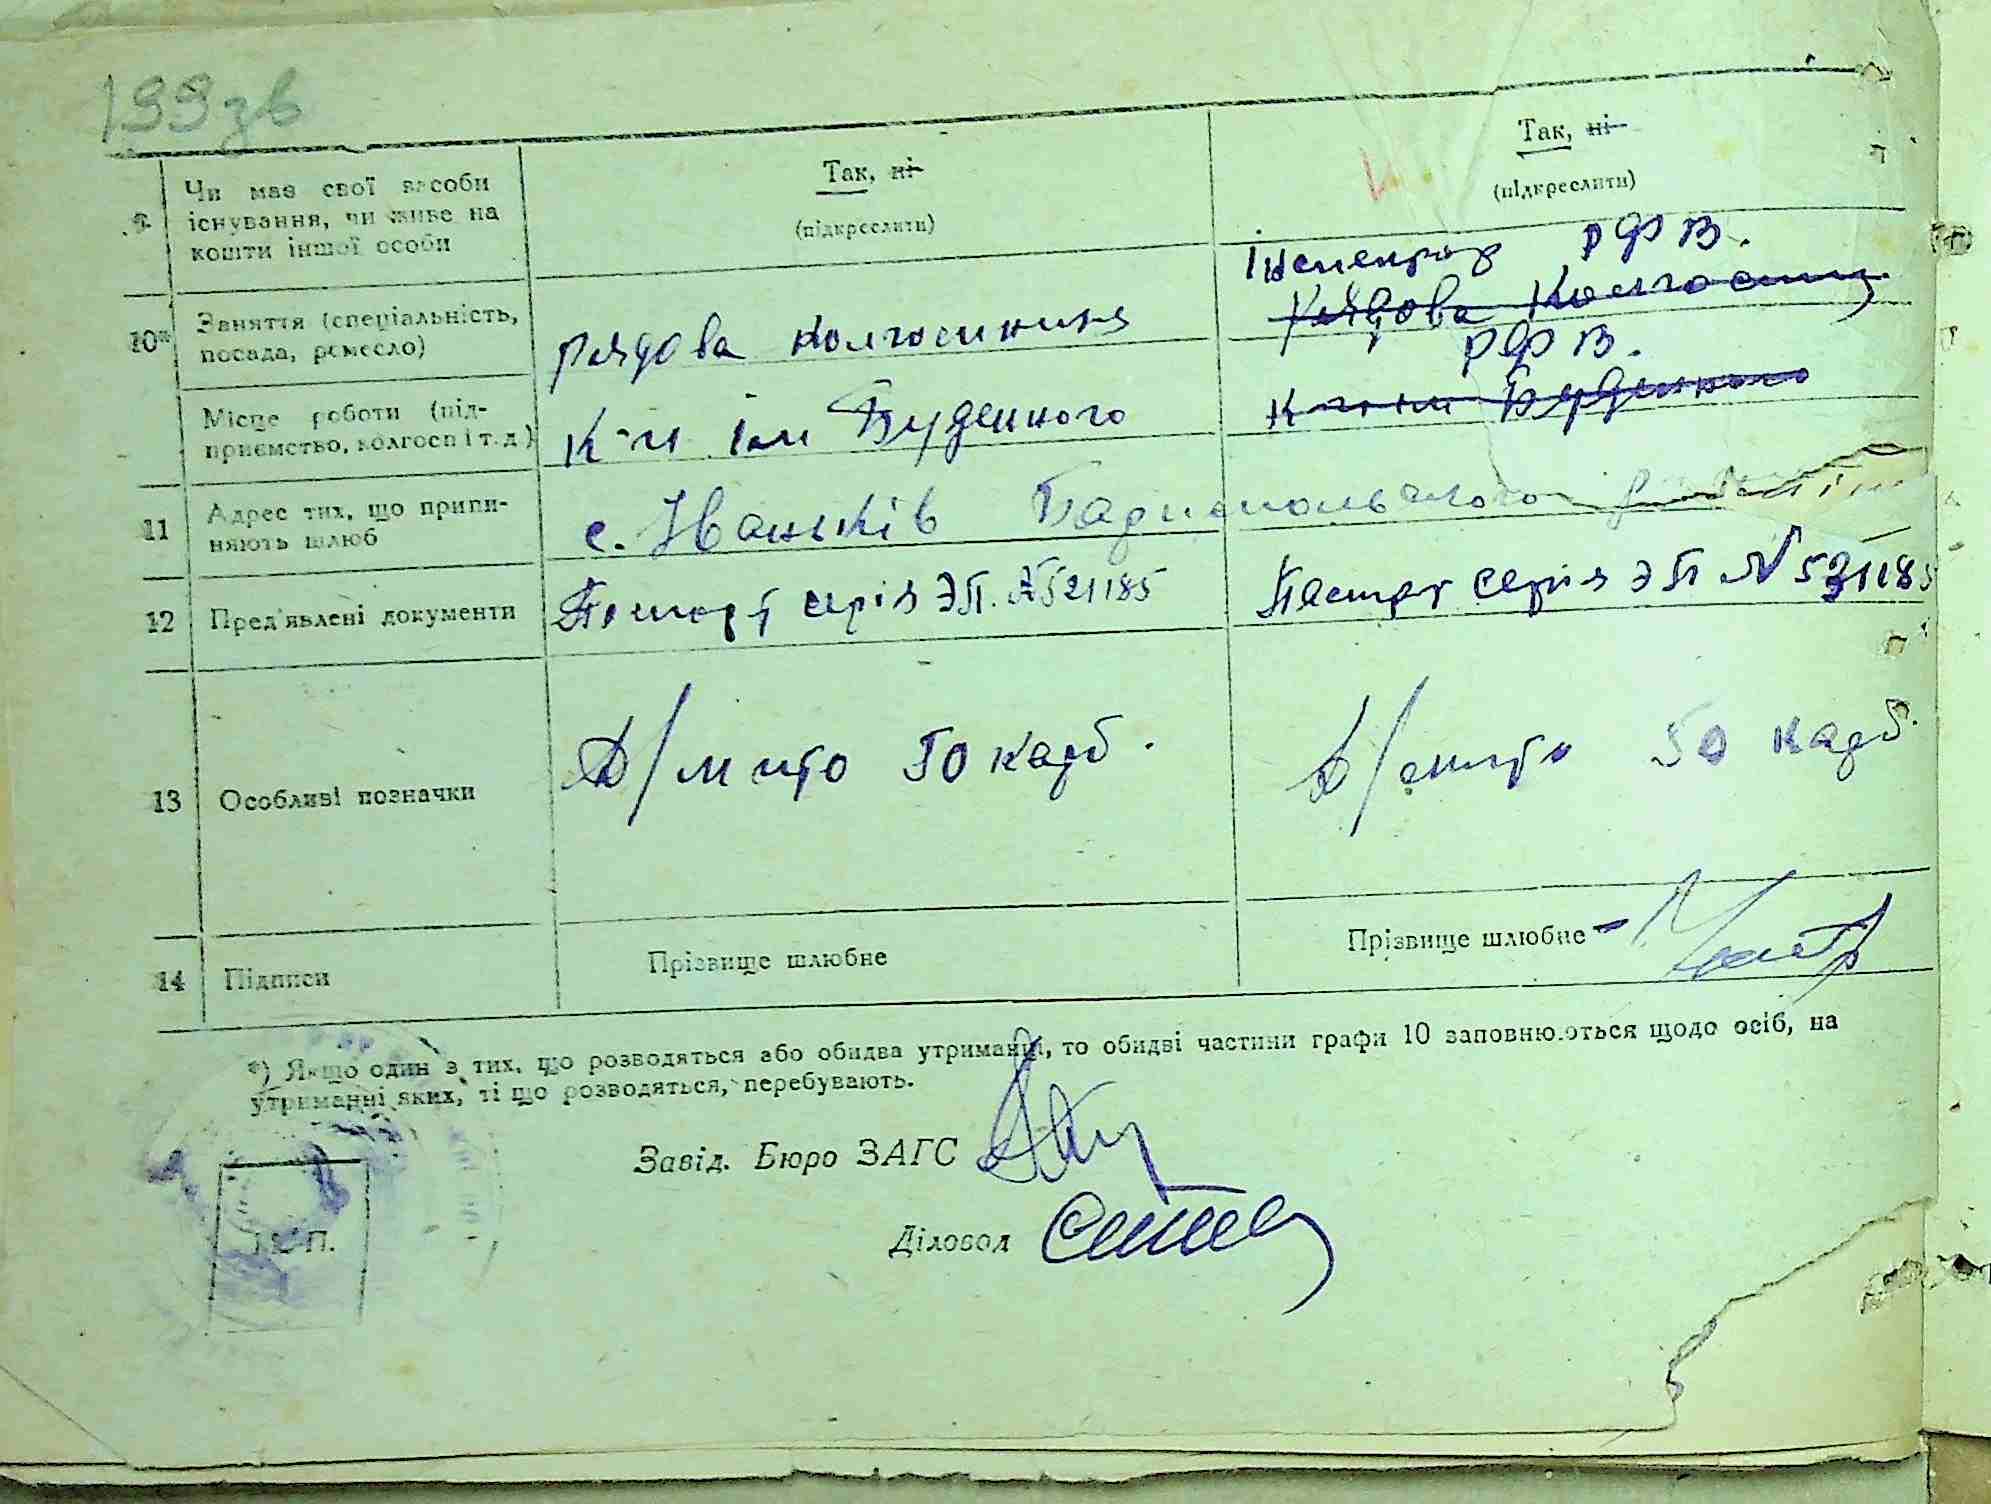 199 зв
9 Чи має свої засоби існування, чи живе на кошти іншої особи
Так, ні
(підкреслити)
Так, ні
(підкреслити)
10*) Заняття (спеціальність, посада, ремесло)
рядова колгоспниця
Інспектор РФВ.
Рядова колгоспниц
Місце роботи (підприємство, колгосп і т. д.)
к-п ім Буденного
РФВ.
к-п ім Буденного
11 Адрес тих, що припиняють шлюб
с. Іваньків Бариспольського
12 Пред'явлені документи
Паспорт серія ЭП. № 521185
Паспорт серія ЭП № 521185
13 Особливі позначки
Д/мито 50 карб.
Д/мито 50 карб.
14 Підписи
Прізвище шлюбне
Прізвище шлюбне -
*) Якщо один з тих, що розводяться або обидва утриманці, то обидві частини графи 10 заповнюються щодо осіб, на
утриманні яких, ті що розводяться, перебувають.
Завід. Бюро ЗАГС
Діловод
М. П.